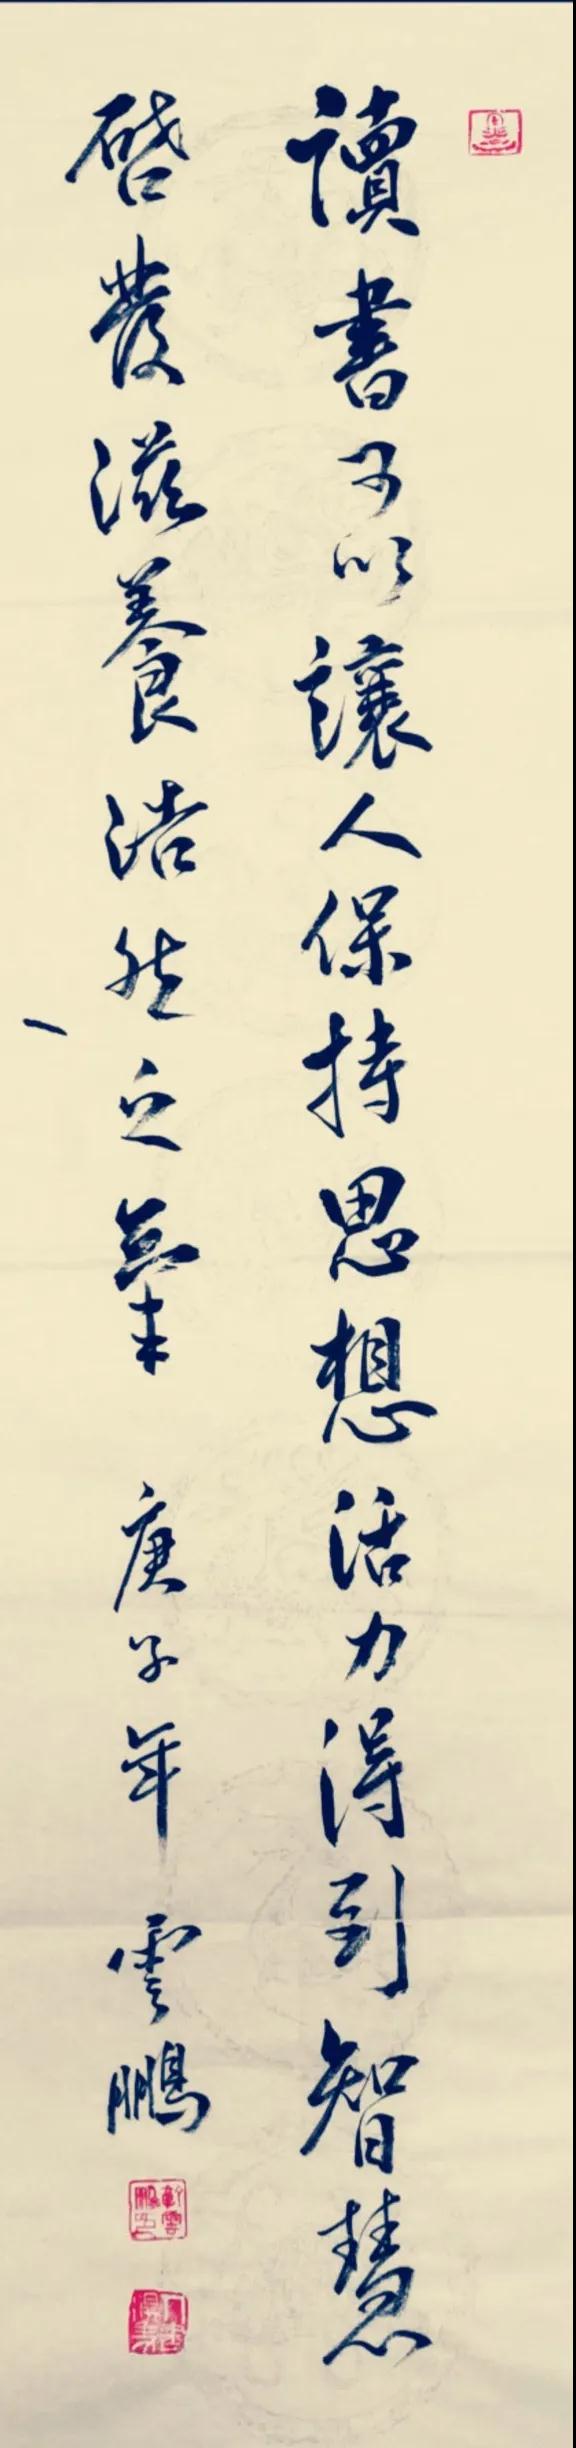 讀書可以讓人保持思想活力得到智慧
啓發滋養浩然之氣 庚子年 雲鵬